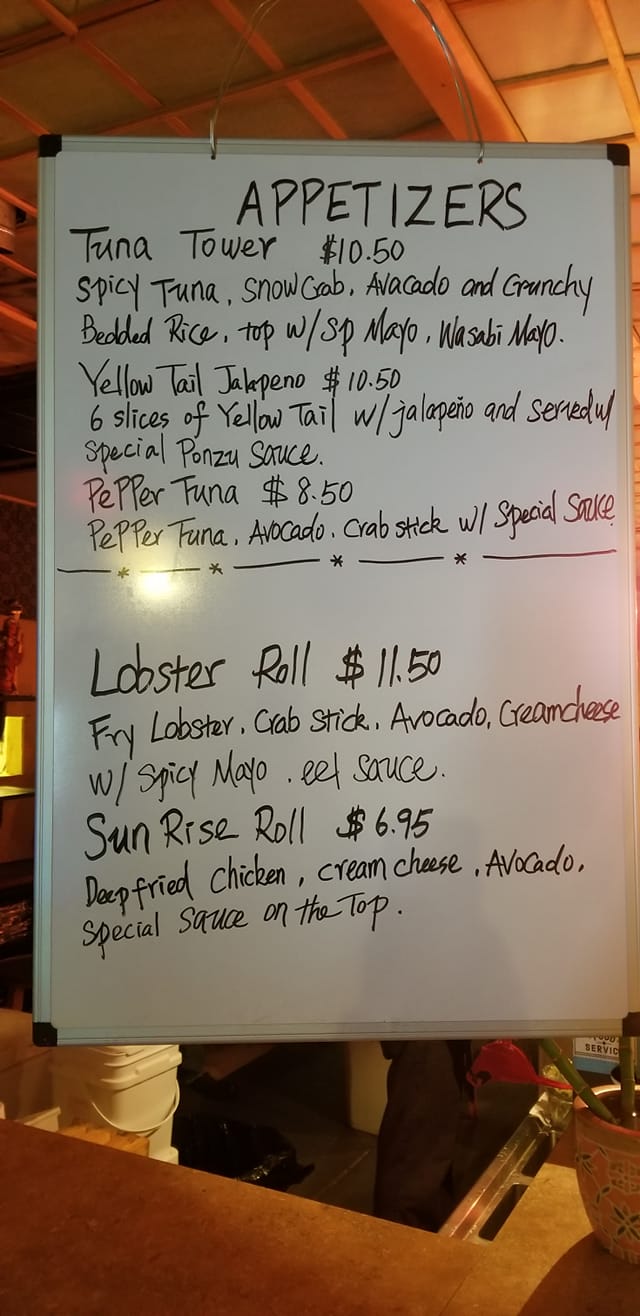 APPETIZERS
Tuna Tower $10.50
Spicy Tuna, Snow Crab, Avacado and Crunchy
Bedded Rice, top w/ Sp Mayo, Wasabi Mayo.
Yellow Tail Jalapeno $10.50
6 slices of Yellow Tail w/ jalapeño and served w/
Special Ponzu Sauce.
Pepper Tuna $8.50
Pepper Tuna, Avocado, Crab stick w/ Special Sauce
Lobster Roll $11.50
Fry Lobster, Crab Stick, Avocado, Creamcheese
w/ Spicy Mayo, eel sauce.
Sun Rise Roll $6.95
Deepfried Chicken, cream cheese, Avocado,
Special Sauce on the Top.
SERVIC